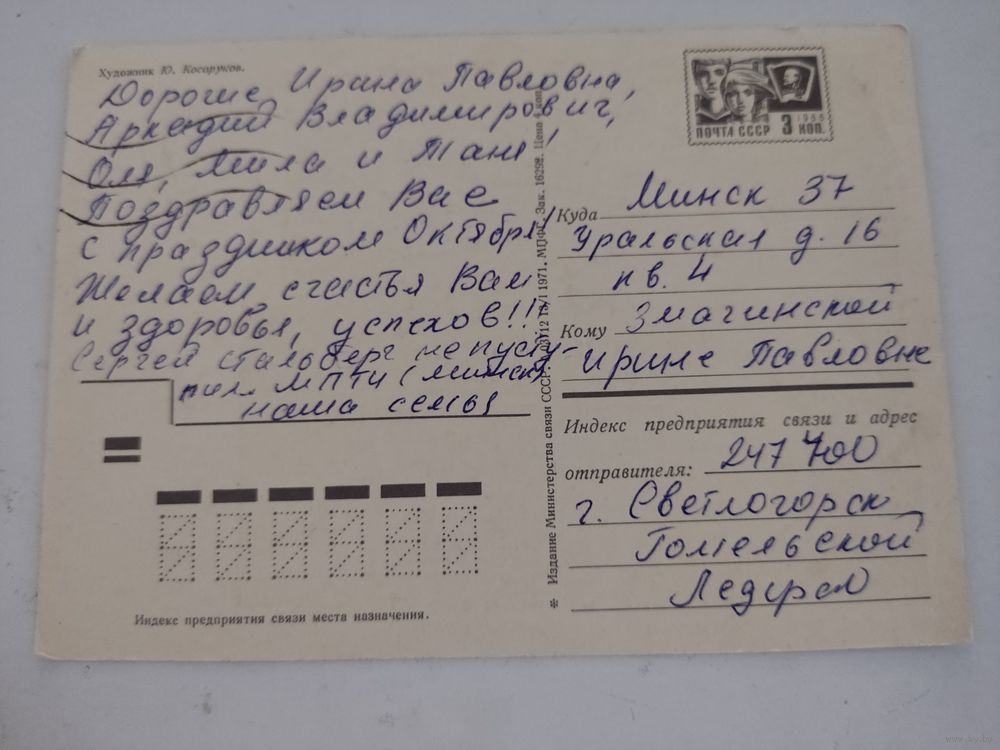 Художник Ю. Косоруков.
Дорогие Ирина Павловна,
Аркадий Владимирович,
Оля, Мила и Таня!
Поздравляем Вас
с праздником Октября!
Желаем счастья Вам
и здоровья, успехов!!!
Сергей Стальберг не посту-
пил МПТИ (Минск)
наша семья
Индекс предприятия связи места назначения.
Издание Министерства связи СССР. 1971. МПФГ. Зак. 16298. Цена 4 коп.
ПОЧТА СССР 3 КОП.
1966
Куда Минск 37
Уральская д. 16
кв. 4
Кому Змагинской
Ирине Павловне
Индекс предприятия связи и адрес
отправителя: 247400
г. Светлогорск
Гомельской